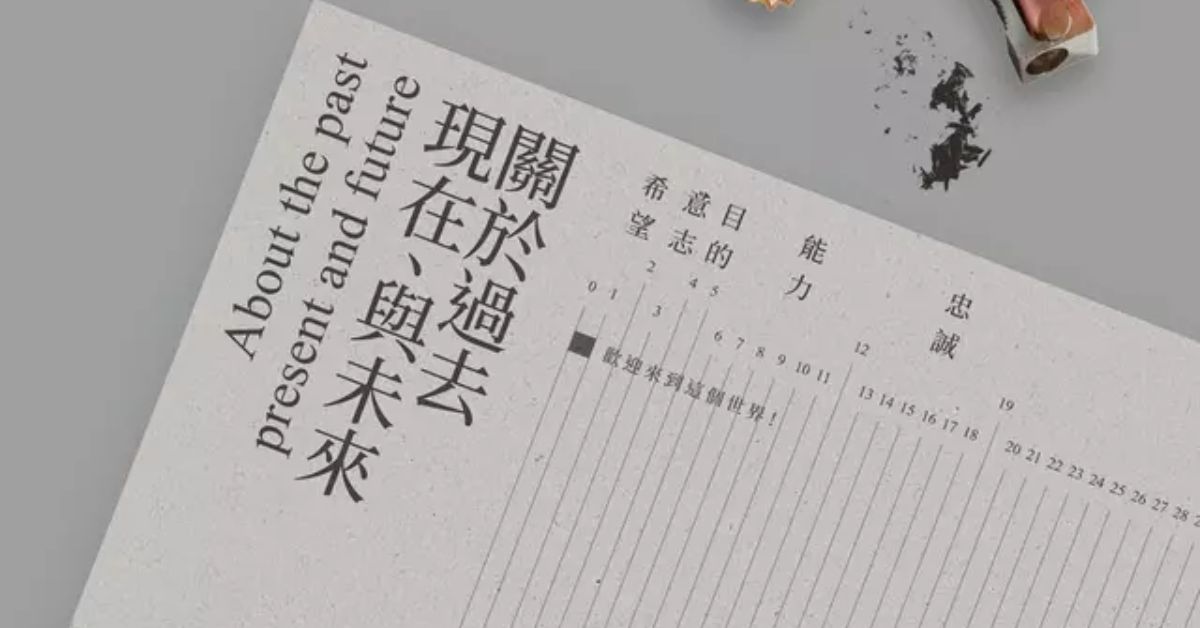 關於過去
現在、與未來
About the past
present and future
希望
意志
目的
能力
忠誠
0 1 2 3 4 5 6 7 8 9 10 11 12 13 14 15 16 17 18 19 20 21 22 23 24 25 26 27 28
歡迎來到這個世界！